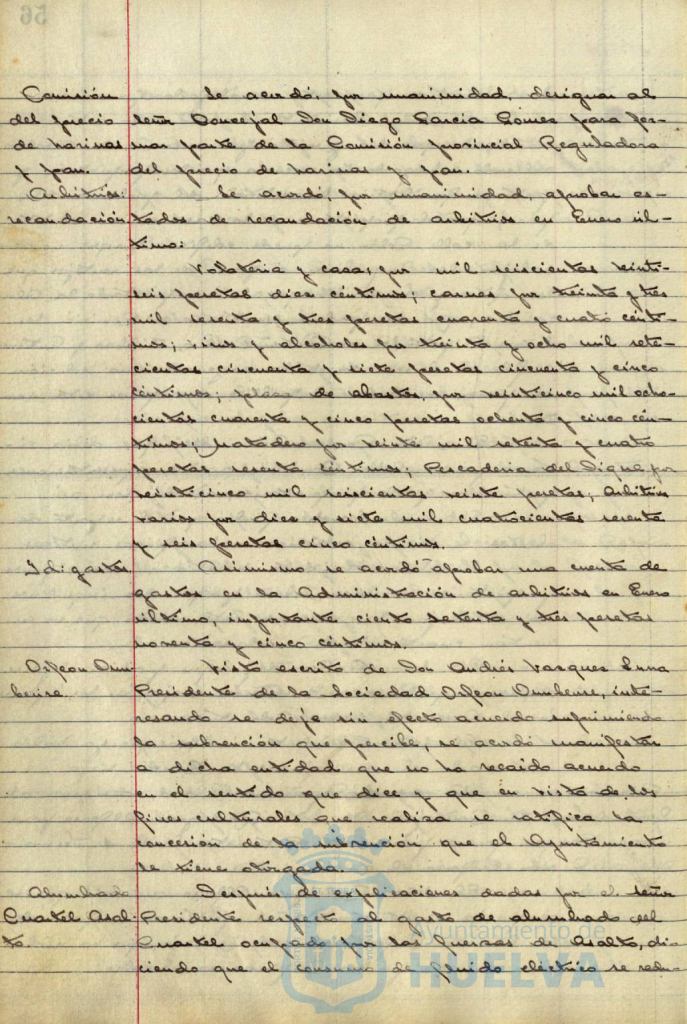 56
Comisión
del precio
de harinas
y pan.
Se acordó, por unanimidad, designar al
señor Concejal Don Diego Garcia Gomez para for-
mar parte de la Comisión provincial Reguladora
del precio de harinas y pan.
Arbitrios:
recaudación
Se acordó, por unanimidad, aprobar es-
tados de recaudación de arbitrios en Enero úl-
timo:
Volateria y caza, por mil seiscientas veinti-
seis pesetas diez céntimos; carnes por treinta y tres
mil sesenta y tres pesetas cuarenta y cuatro cénti-
mos; vinos y alcoholes por treinta y ocho mil sete-
cientas cincuenta y siete pesetas cincuenta y cinco
céntimos; plaza de abastos, por veinticinco mil ocho-
cientas cuarenta y cinco pesetas ochenta y cinco cén-
timos; Matadero por veinte mil setenta y cuatro
pesetas sesenta céntimos; Pescaderia del Dique, por
veinticinco mil seiscientas veinte pesetas; Arbitrios
varios por diez y siete mil cuatrocientas sesenta
y seis pesetas cinco céntimos.
Id: gastos.
Asimismo se acordó aprobar una cuenta de
gastos en la Administración de arbitrios en Enero
último, importante ciento setenta y tres pesetas
noventa y cinco céntimos.
Orfeon Onu-
bense.
Visto escrito de Don Andrés Vazquez
Presidente de la Sociedad Orfeon Onubense, inte-
resando se deje sin efecto acuerdo suprimiendo
la subvención que percibe, se acordó manifestar
a dicha entidad que no ha recaido acuerdo
en el sentido que dice y que en vista de los
fines culturales que realiza se ratifica la
concesión de la subvención que el Ayuntamiento
le tiene otorgada.
Alumbrado
Cuartel Asal-
to.
Después de explicaciones dadas por el señor
Presidente respecto al gasto de alumbrado del
Cuartel ocupado por las fuerzas de Asalto, di-
ciendo que el consumo de fluido eléctrico se redu-
Ayuntamiento de
HUELVA